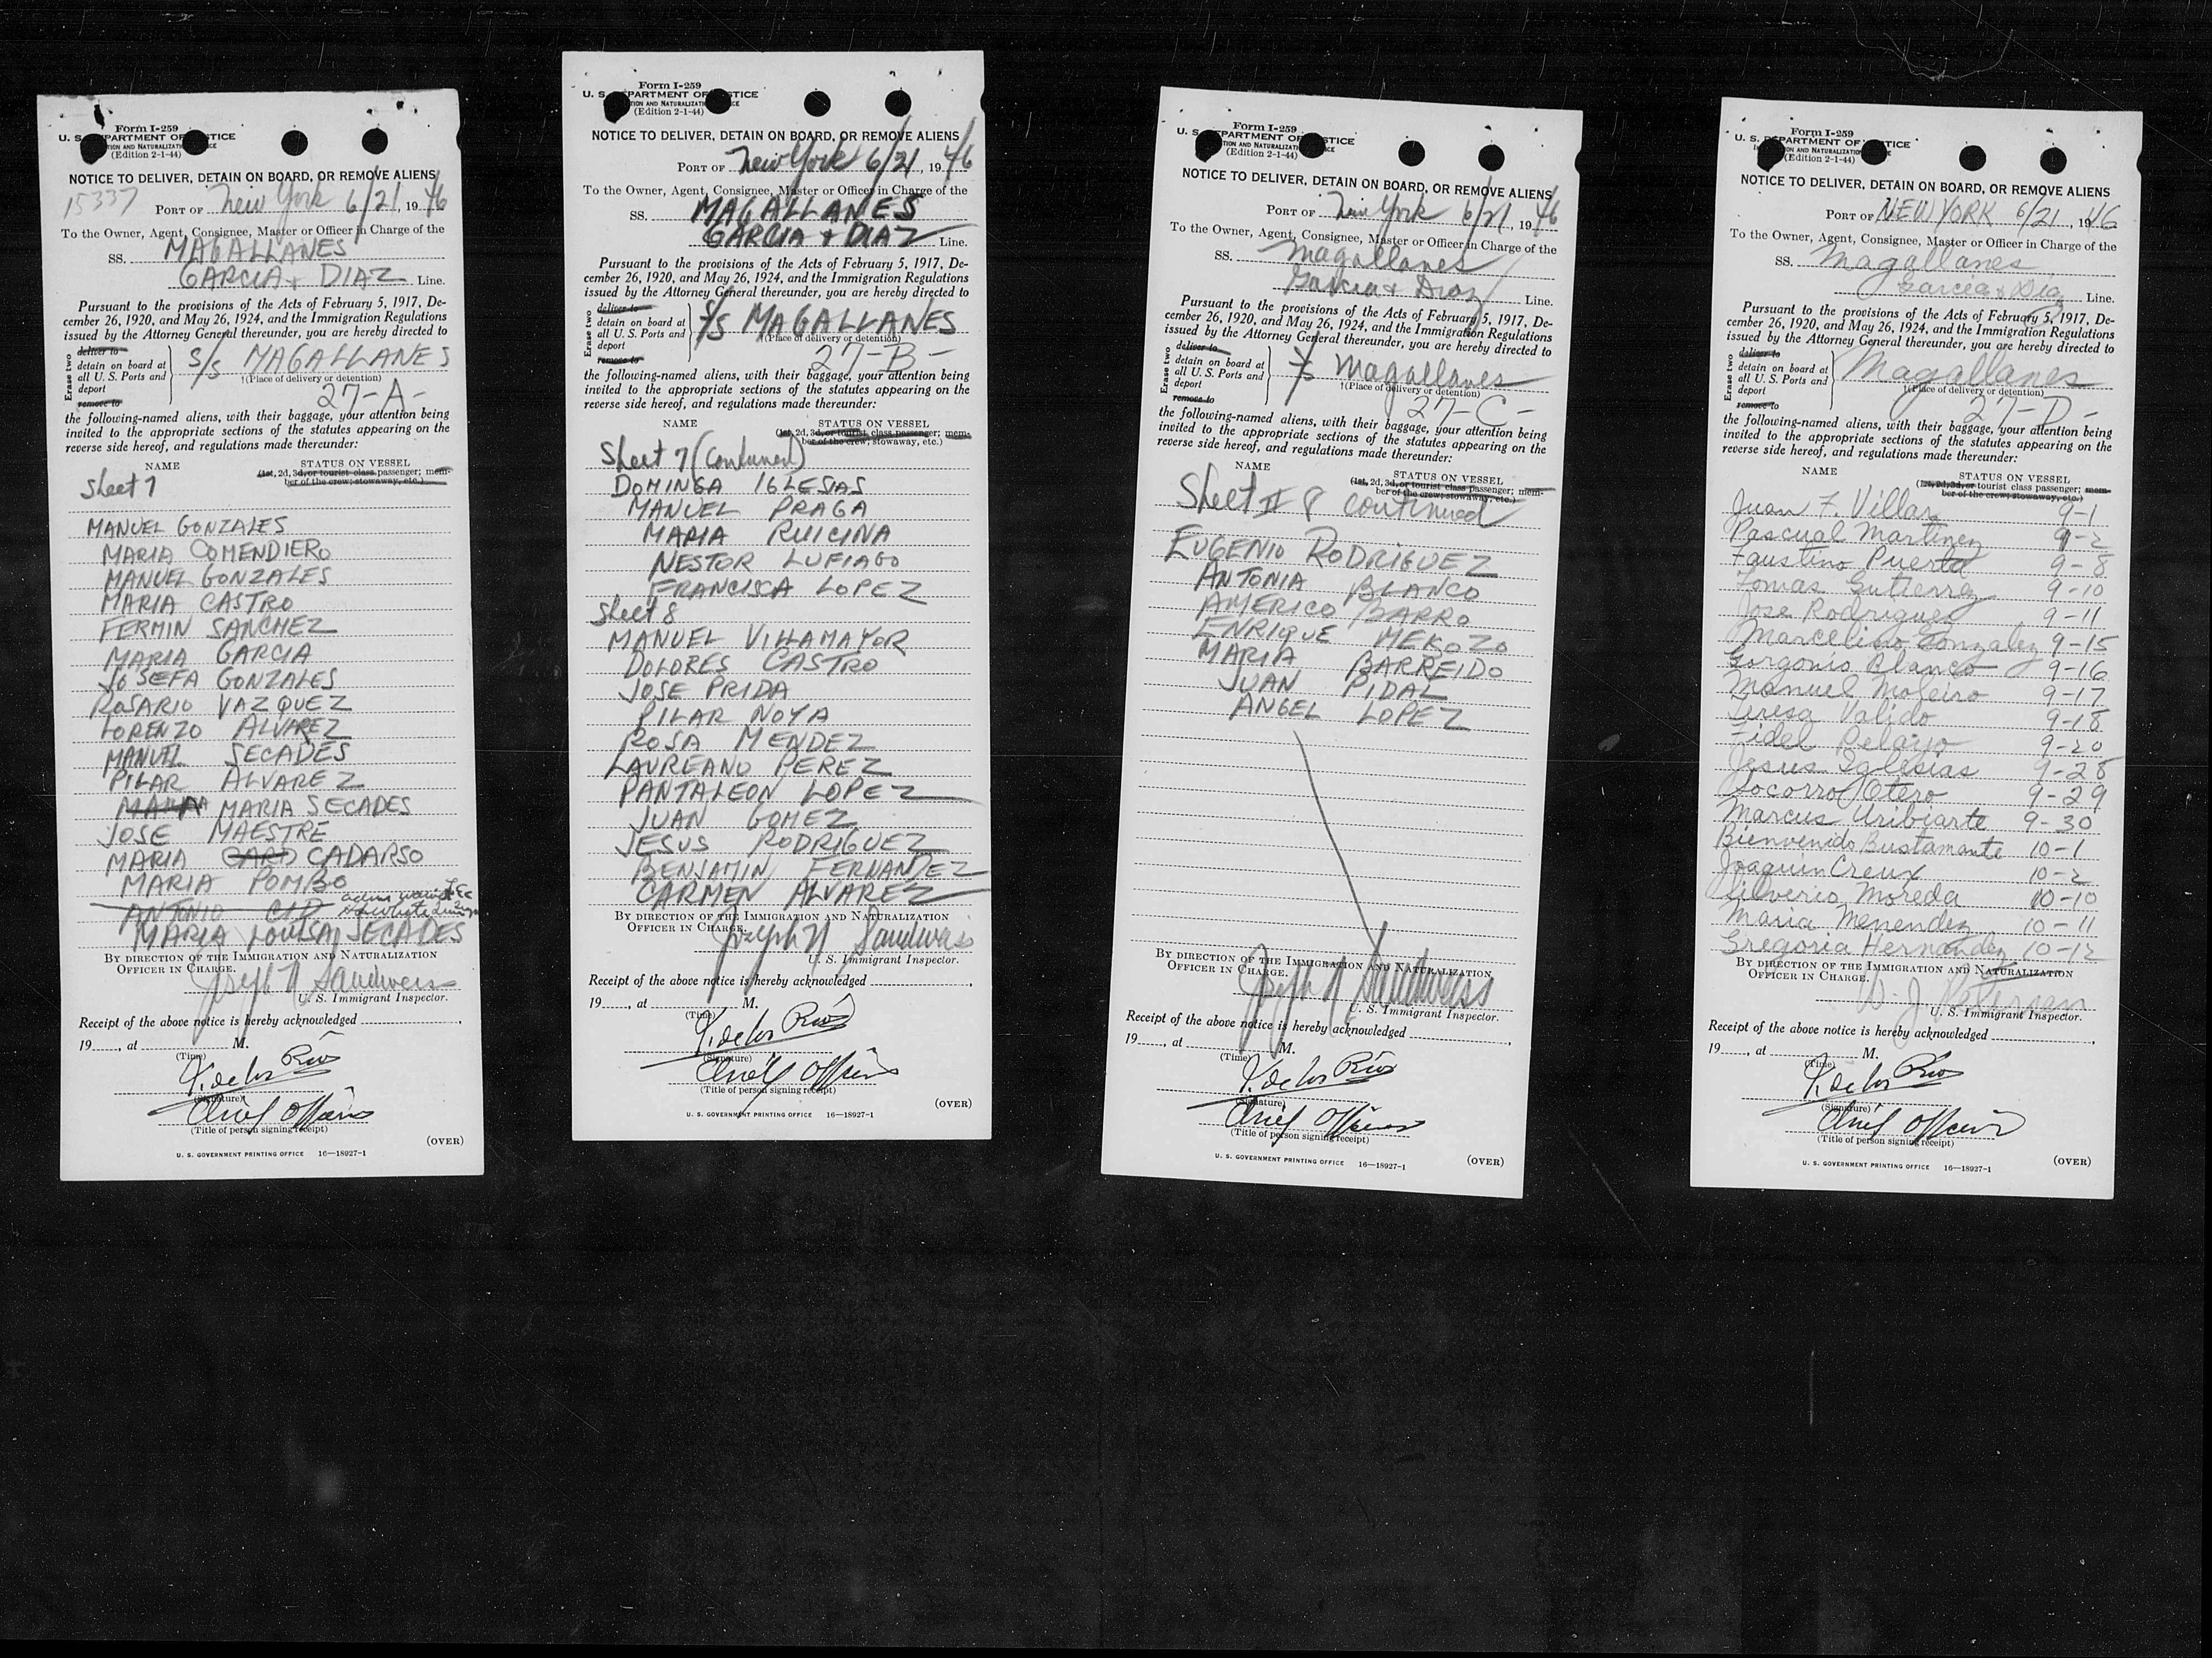 Form I-259
U. S. DEPARTMENT OF JUSTICE
(Edition 2-1-44)
NOTICE TO DELIVER, DETAIN ON BOARD, OR REMOVE ALIENS
15337
PORT OF New York 6/21, 1946
To the Owner, Agent, Consignee, Master or Officer in Charge of the
SS. MAGALLANES
GARCIA + DIAZ Line.
Pursuant to the provisions of the Acts of February 5, 1917, De-
cember 26, 1920, and May 26, 1924, and the Immigration Regulations
issued by the Attorney General thereunder, you are hereby directed to
Erase two
deliver to
detain on board at
all U. S. Ports and
deport
remove to
S/S MAGALLANES
†(Place of delivery or detention)
27-A-
the following-named aliens, with their baggage, your attention being
invited to the appropriate sections of the statutes appearing on the
reverse side hereof, and regulations made thereunder:
NAME STATUS ON VESSEL
(1st, 2d, 3d, or tourist class passenger; mem-
ber of the crew; stowaway, etc.)
Sheet 7
MANUEL GONZALES
MARIA COMENDIERO
MANUEL GONZALES
MARIA CASTRO
FERMIN SANCHEZ
MARIA GARCIA
JOSEFA GONZALES
ROSARIO VAZQUEZ
LORENZO ALVAREZ
MANUEL SECADES
PILAR ALVAREZ
MARIA SECADES
JOSE MAESTRE
MARIA CARD CADARSO
MARIA POMBO
ANTONIO CID
MARIA LOUISA SECADES
BY DIRECTION OF THE IMMIGRATION AND NATURALIZATION
OFFICER IN CHARGE.
Joseph N Sandweiss
U. S. Immigrant Inspector.
Receipt of the above notice is hereby acknowledged
19____, at ____ M.
(Time)
V. de los Rios
(Signature)
Chief Officer
(Title of person signing receipt)
(OVER)
U. S. GOVERNMENT PRINTING OFFICE 16—18927-1
Form I-259
U. S. DEPARTMENT OF JUSTICE
(Edition 2-1-44)
NOTICE TO DELIVER, DETAIN ON BOARD, OR REMOVE ALIENS
PORT OF New York 6/21, 1946
To the Owner, Agent, Consignee, Master or Officer in Charge of the
SS. MAGALLANES
GARCIA + DIAZ Line.
Pursuant to the provisions of the Acts of February 5, 1917, De-
cember 26, 1920, and May 26, 1924, and the Immigration Regulations
issued by the Attorney General thereunder, you are hereby directed to
Erase two
deliver to
detain on board at
all U. S. Ports and
deport
remove to
S/S MAGALLANES
†(Place of delivery or detention)
27-B-
the following-named aliens, with their baggage, your attention being
invited to the appropriate sections of the statutes appearing on the
reverse side hereof, and regulations made thereunder:
NAME STATUS ON VESSEL
(1st, 2d, 3d, or tourist class passenger; mem-
ber of the crew; stowaway, etc.)
Sheet 7 (Continued)
DOMINGA IGLESIAS
MANUEL PRAGA
MARIA RUICINA
NESTOR LUFIAGO
FRANCISCA LOPEZ
Sheet 8
MANUEL VILLAMAYOR
DOLORES CASTRO
JOSE PRIDA
PILAR NOYA
ROSA MENDEZ
LAUREANO PEREZ
PANTALEON LOPEZ
JUAN GOMEZ
JESUS RODRIGUEZ
BENJAMIN FERNANDEZ
CARMEN ALVAREZ
BY DIRECTION OF THE IMMIGRATION AND NATURALIZATION
OFFICER IN CHARGE.
Joseph N Sandweiss
U. S. Immigrant Inspector.
Receipt of the above notice is hereby acknowledged
19____, at ____ M.
(Time)
V. de los Rios
(Signature)
Chief Officer
(Title of person signing receipt)
(OVER)
U. S. GOVERNMENT PRINTING OFFICE 16—18927-1
Form I-259
U. S. DEPARTMENT OF JUSTICE
(Edition 2-1-44)
NOTICE TO DELIVER, DETAIN ON BOARD, OR REMOVE ALIENS
PORT OF New York 6/21, 1946
To the Owner, Agent, Consignee, Master or Officer in Charge of the
SS. Magallanes
Garcia + Diaz Line.
Pursuant to the provisions of the Acts of February 5, 1917, De-
cember 26, 1920, and May 26, 1924, and the Immigration Regulations
issued by the Attorney General thereunder, you are hereby directed to
Erase two
deliver to
detain on board at
all U. S. Ports and
deport
remove to
S/S Magallanes
†(Place of delivery or detention)
27-C-
the following-named aliens, with their baggage, your attention being
invited to the appropriate sections of the statutes appearing on the
reverse side hereof, and regulations made thereunder:
NAME STATUS ON VESSEL
(1st, 2d, 3d, or tourist class passenger; mem-
ber of the crew; stowaway, etc.)
Sheet # 8 continued
EUGENIO RODRIGUEZ
ANTONIA BLANCO
AMERICO BARRO
ENRIQUE MEKOZO
MARIA BARREIDO
JUAN PIDAL
ANGEL LOPEZ
BY DIRECTION OF THE IMMIGRATION AND NATURALIZATION
OFFICER IN CHARGE.
Joseph N Sandweiss
U. S. Immigrant Inspector.
Receipt of the above notice is hereby acknowledged
19____, at ____ M.
(Time)
V. de los Rios
(Signature)
Chief Officer
(Title of person signing receipt)
(OVER)
U. S. GOVERNMENT PRINTING OFFICE 16—18927-1
Form I-259
U. S. DEPARTMENT OF JUSTICE
(Edition 2-1-44)
NOTICE TO DELIVER, DETAIN ON BOARD, OR REMOVE ALIENS
PORT OF NEW YORK 6/21, 1946
To the Owner, Agent, Consignee, Master or Officer in Charge of the
SS. Magallanes
Garcia & Diaz Line.
Pursuant to the provisions of the Acts of February 5, 1917, De-
cember 26, 1920, and May 26, 1924, and the Immigration Regulations
issued by the Attorney General thereunder, you are hereby directed to
Erase two
deliver to
detain on board at
all U. S. Ports and
deport
remove to
Magallanes
†(Place of delivery or detention)
27-D-
the following-named aliens, with their baggage, your attention being
invited to the appropriate sections of the statutes appearing on the
reverse side hereof, and regulations made thereunder:
NAME STATUS ON VESSEL
(1st, 2d, 3d, or tourist class passenger; mem-
ber of the crew; stowaway, etc.)
Juan F. Villar 9-1
Pascual Martinez 9-2
Faustino Puerta 9-8
Tomas Gutierrez 9-10
Jose Rodriguez 9-11
Marcelino Gonzalez 9-15
Gorgonio Blanco 9-16
Manuel Moleiro 9-17
Teresa Valido 9-18
Fidel Pelayo 9-20
Jesus Iglesias 9-28
Socorro Otero 9-29
Marcus Uribiarte 9-30
Bienvenido Bustamante 10-1
Joaquin Creux 10-2
Silverio Moreda 10-10
Maria Menendez 10-11
Gregoria Hernandez 10-12
BY DIRECTION OF THE IMMIGRATION AND NATURALIZATION
OFFICER IN CHARGE.
W. J. Petersen
U. S. Immigrant Inspector.
Receipt of the above notice is hereby acknowledged
19____, at ____ M.
(Time)
V. de los Rios
(Signature)
Chief Officer
(Title of person signing receipt)
(OVER)
U. S. GOVERNMENT PRINTING OFFICE 16—18927-1